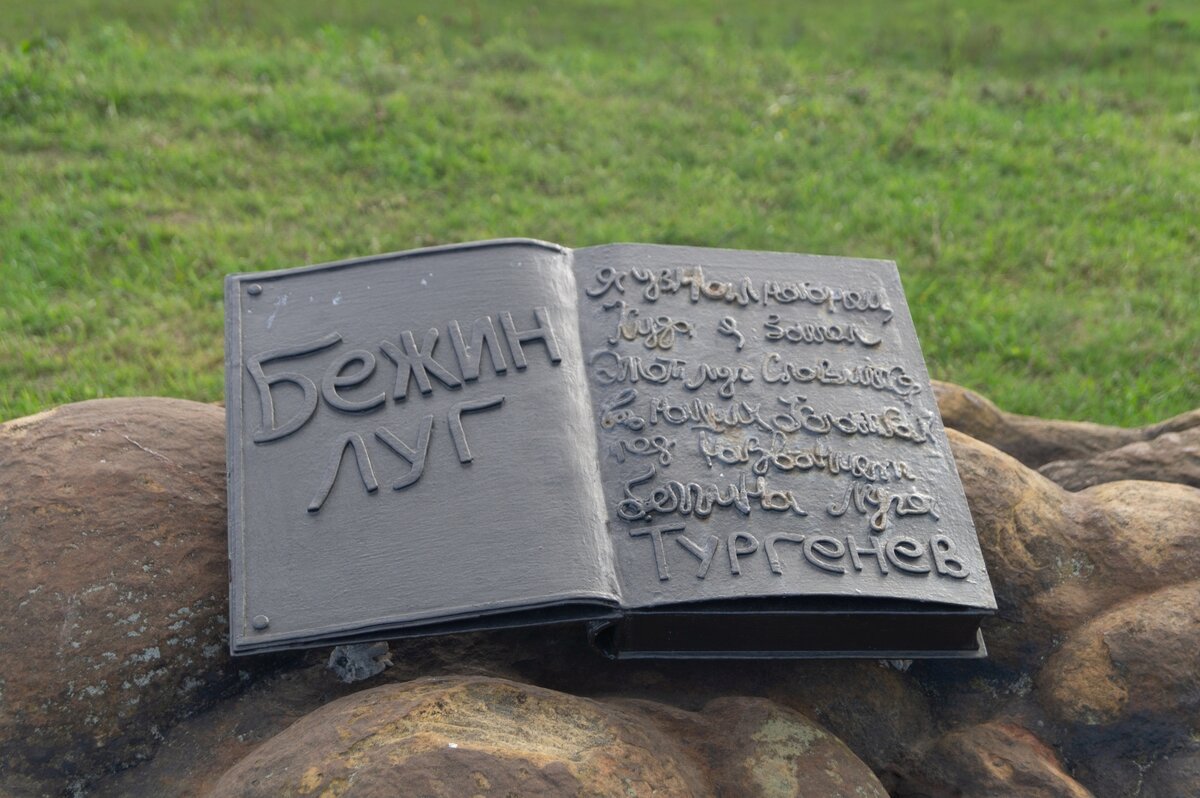 Бежин
луг
Я узнал наконец
Куда я зашел
Этот луг славится
в наших околотках
под названием
Бежина луга
Тургенев